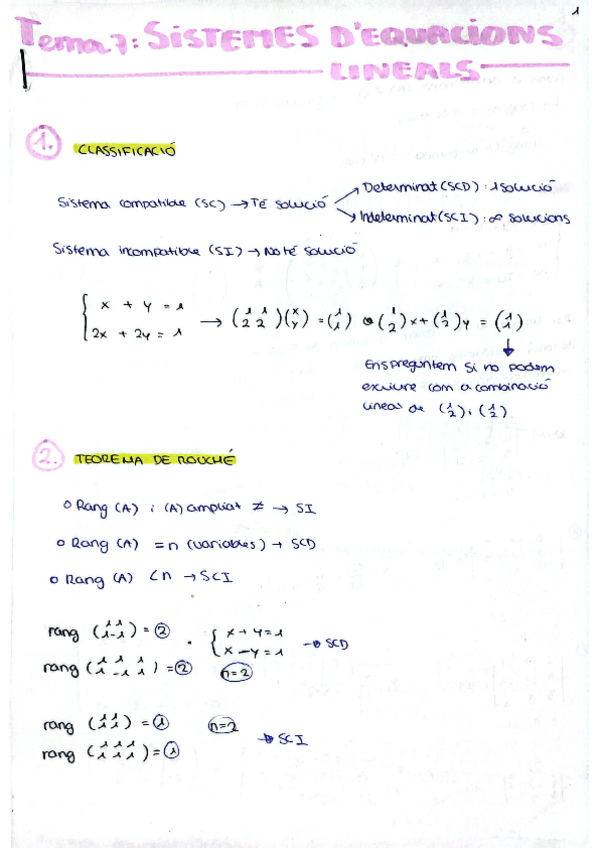 1
Tema 7: SISTEMES D'EQUACIONS
LINEALS
1. CLASSIFICACIÓ
Sistema compatible (SC) → Té solució
Determinat (SCD): 1 solució
Indeterminat (SCI): ∞ solucions
Sistema incompatible (SI) → No té solució
{ x + y = 1
2x + 2y = 1
→ (1 1 / 2 2)(x / y) = (1 / 1) o (1 / 2)x + (1 / 2)y = (1 / 1)
Ens preguntem si no podem
exriure com a combinació
lineal de (1 / 2) i (1 / 2)
2. TEOREMA DE ROUCHÉ
o Rang (A) i (A) ampliat ≠ → SI
o Rang (A) = n (variables) → SCD
o Rang (A) < n → SCI
rang (1 1 / 1 -1) = 2 . { x + y = 1 / x - y = 1 → SCD
rang (1 1 1 / 1 -1 1) = 2 n=2
rang (1 1 / 1 1) = 1 n=2
→ SCI
rang (1 1 1 / 1 1 1) = 1